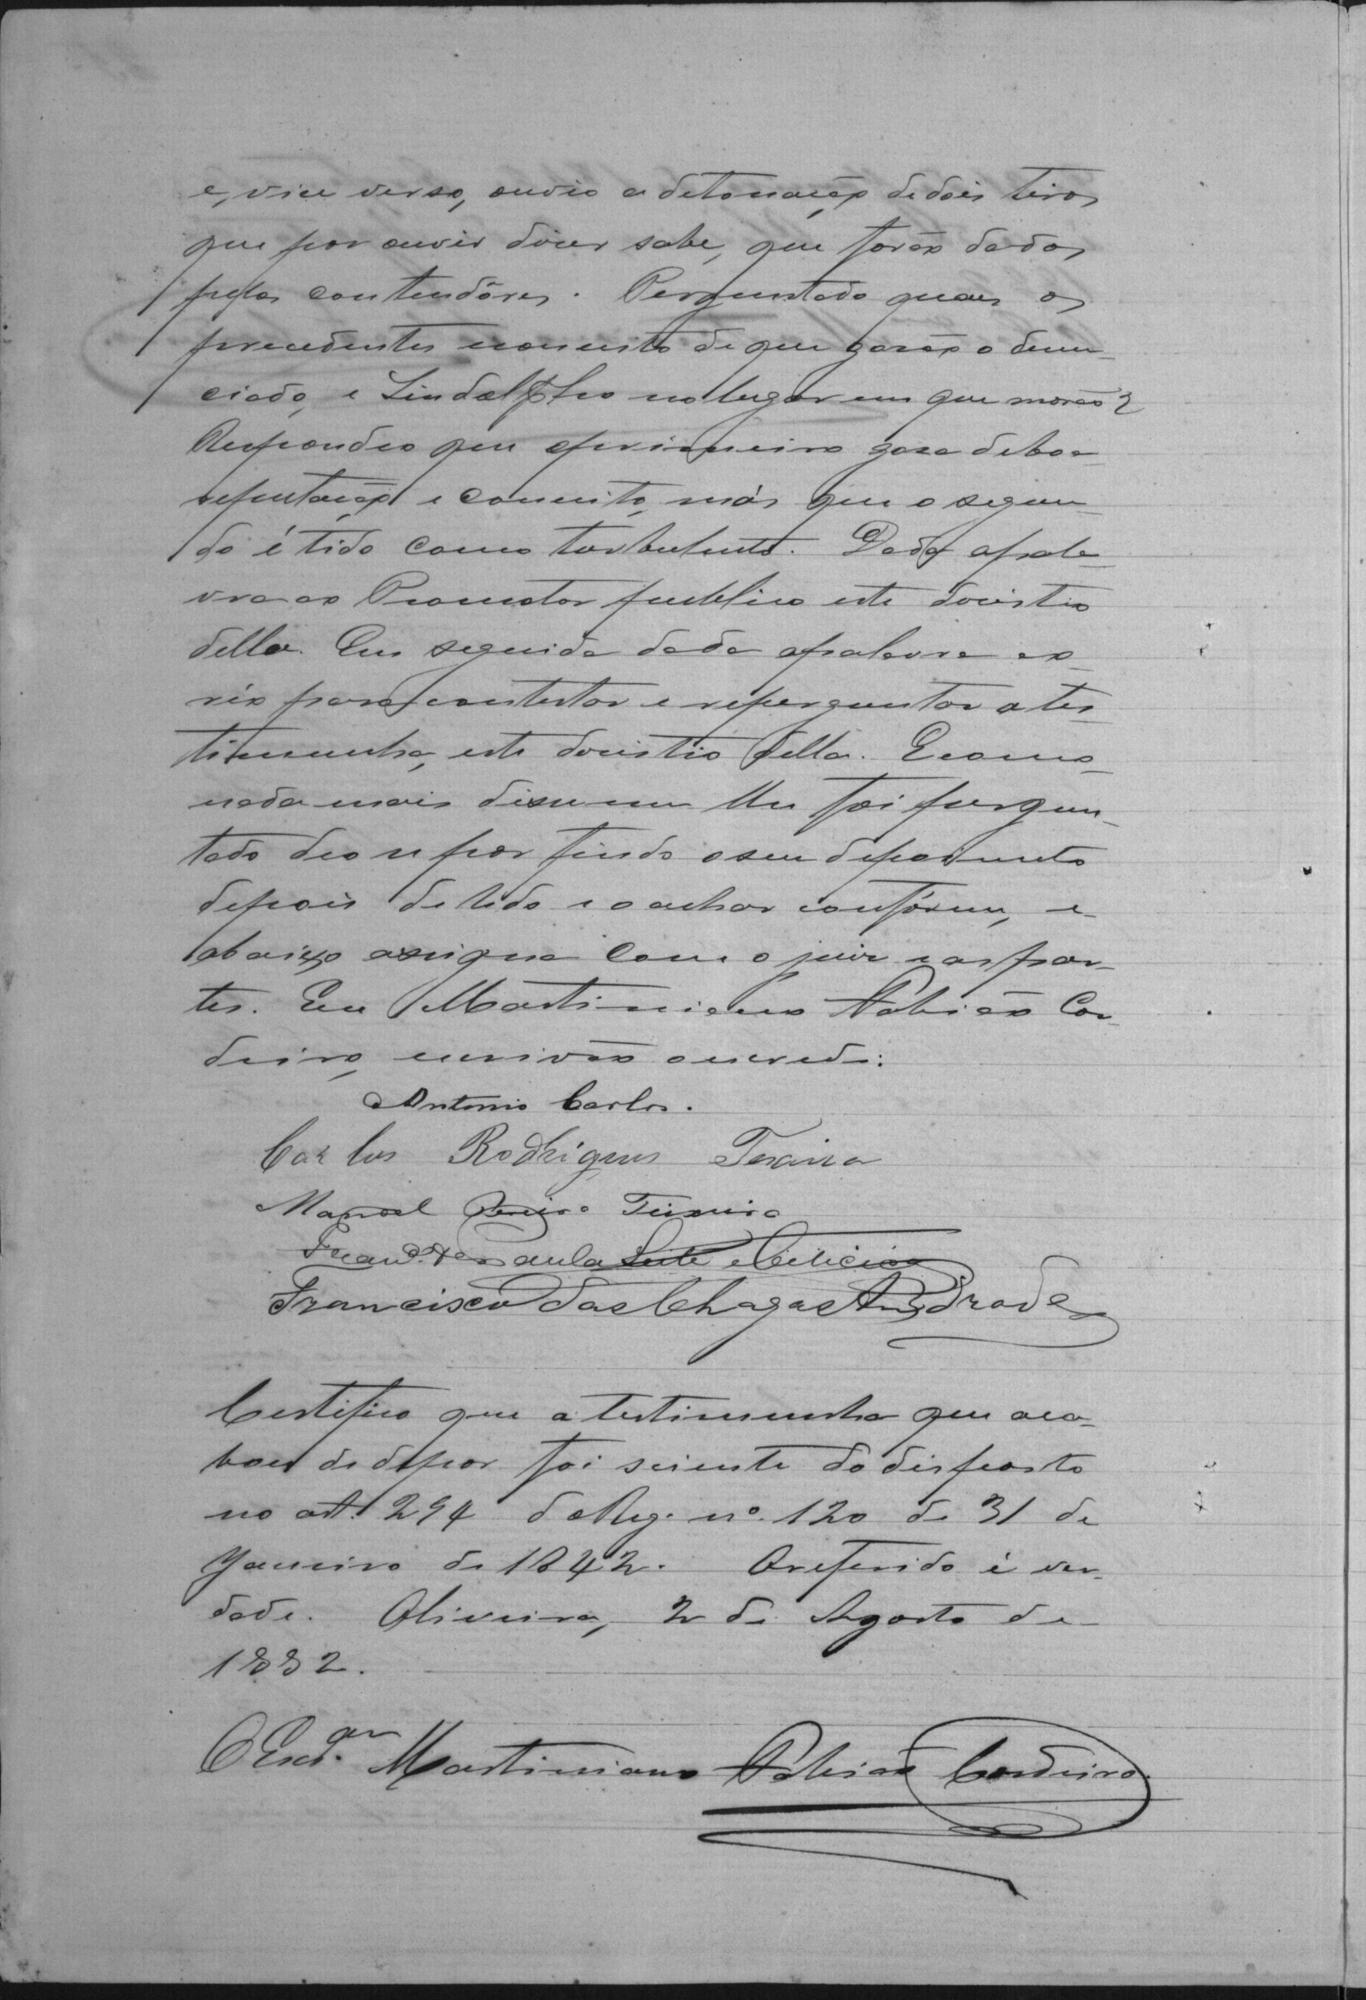 e, vice versa, ouvio a detonação de dois tiros
que por ouvir diser sabe, que forão dados
pelos contendôres. Perguntado quaes os
precedentes e conceito de que gosão o denun-
ciado, e Lindolpho no lugar em que morão?
Respondeo que o primeiro gosa de boa
reputação e conceito, más que o segun-
do é tido como turbulento. Dada a pala-
vra ao Promotor publico este desistio
della. Em seguida dada a palavra ao
réo para contestar e reperguntar a tes-
timunha, este desistio della. E como
nada mais disse nem lhe foi pergun-
tado deo-se por findo o seu depoimento
depois de lido e o achar confórme, e
abaixo assigna com o juiz e as par-
tes. Eu Martiniano Fabião Cor-
deiro, escrivão o escrevi:
Antonio Carlos.
Carlos Rodrigues Texeira
Manoel Pereira Teixeira
Francº de Paula Leite e
Francisco das Chagas Andrade
Certifico que a testimunha que aca-
bou de depor foi sciente do disposto
no art. 294 do Reg. nº. 120 de 31 de
Janeiro de 1842. O referido é ver-
dade. Oliveira, 2 de Agosto de
1882.
O Escr.am Martiniano Fabião Cordeiro.